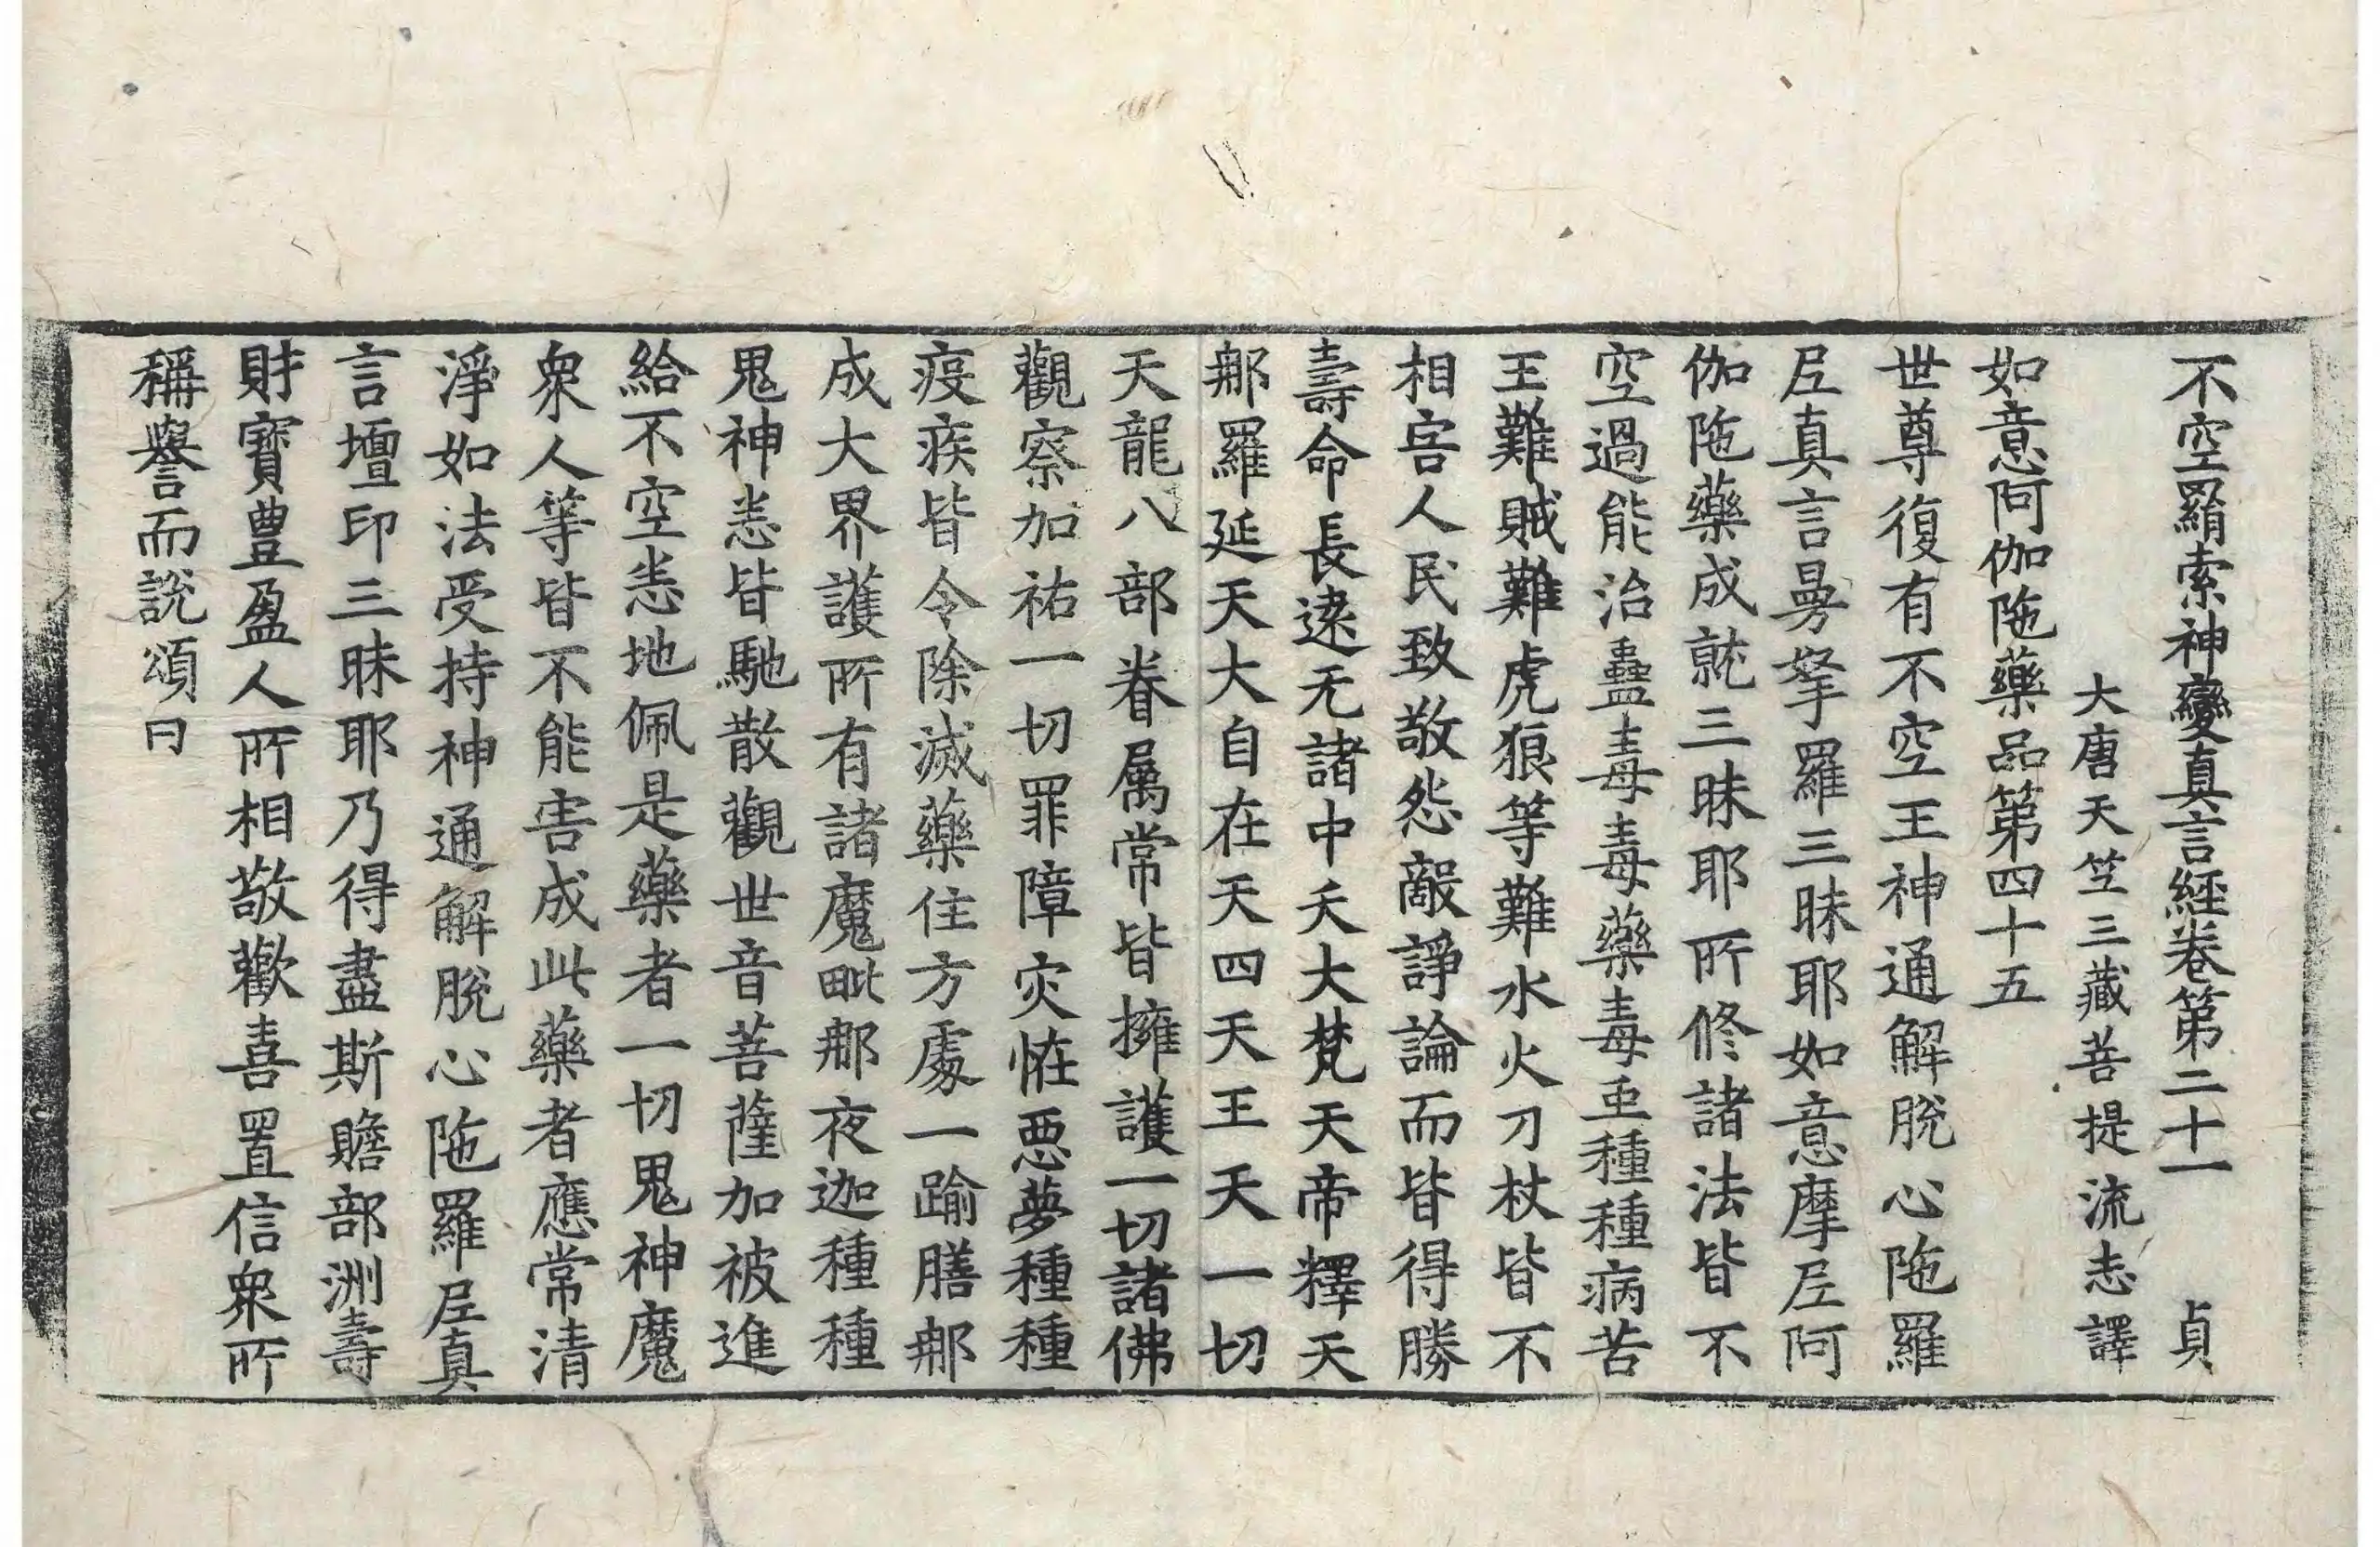 不空羂索神變真言經卷第二十一 貞
大唐天竺三藏菩提流志譯
如意阿伽陁藥品第四十五
世尊復有不空王神通解脫心陁羅
𡰱真言曼拏羅三昧耶如意摩𡰱阿
伽陁藥成就三昧耶所修諸法皆不
空過能治蠱毒毒藥毒䖝種種病苦
王難賊難虎狼等難水火刀杖皆不
相害人民致敬怨敵諍論而皆得勝
壽命長遠无諸中夭大梵天帝釋天
那羅延天大自在天四天王天一切
天龍八部眷屬常皆擁護一切諸佛
觀察加祐一切罪障灾恠惡夢種種
疫疾皆令除滅藥住方處一踰膳那
成大界護所有諸魔毗那夜迦種種
鬼神恙皆馳散觀世音菩薩加被進
給不空恙地佩是藥者一切鬼神魔
衆人等皆不能害成此藥者應常清
淨如法受持神通解脫心陁羅𡰱真
言壇印三昧耶乃得盡斯贍部洲壽
財寶豊盈人所相敬歡喜置信衆所
稱譽而說頌曰